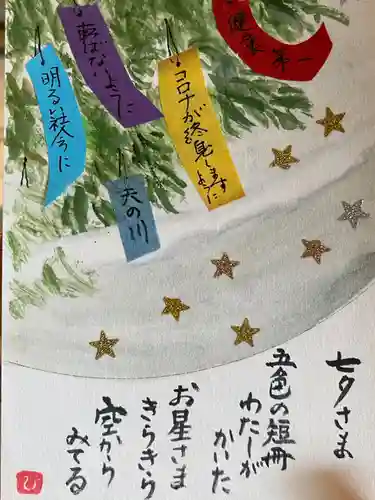 健康第一
コロナが終息しますように
転ばないように
明るい社会に
天の川
七夕さま
五色の短冊
わたしが
かいた
お星さま
きらきら
空から
みてる
ひ